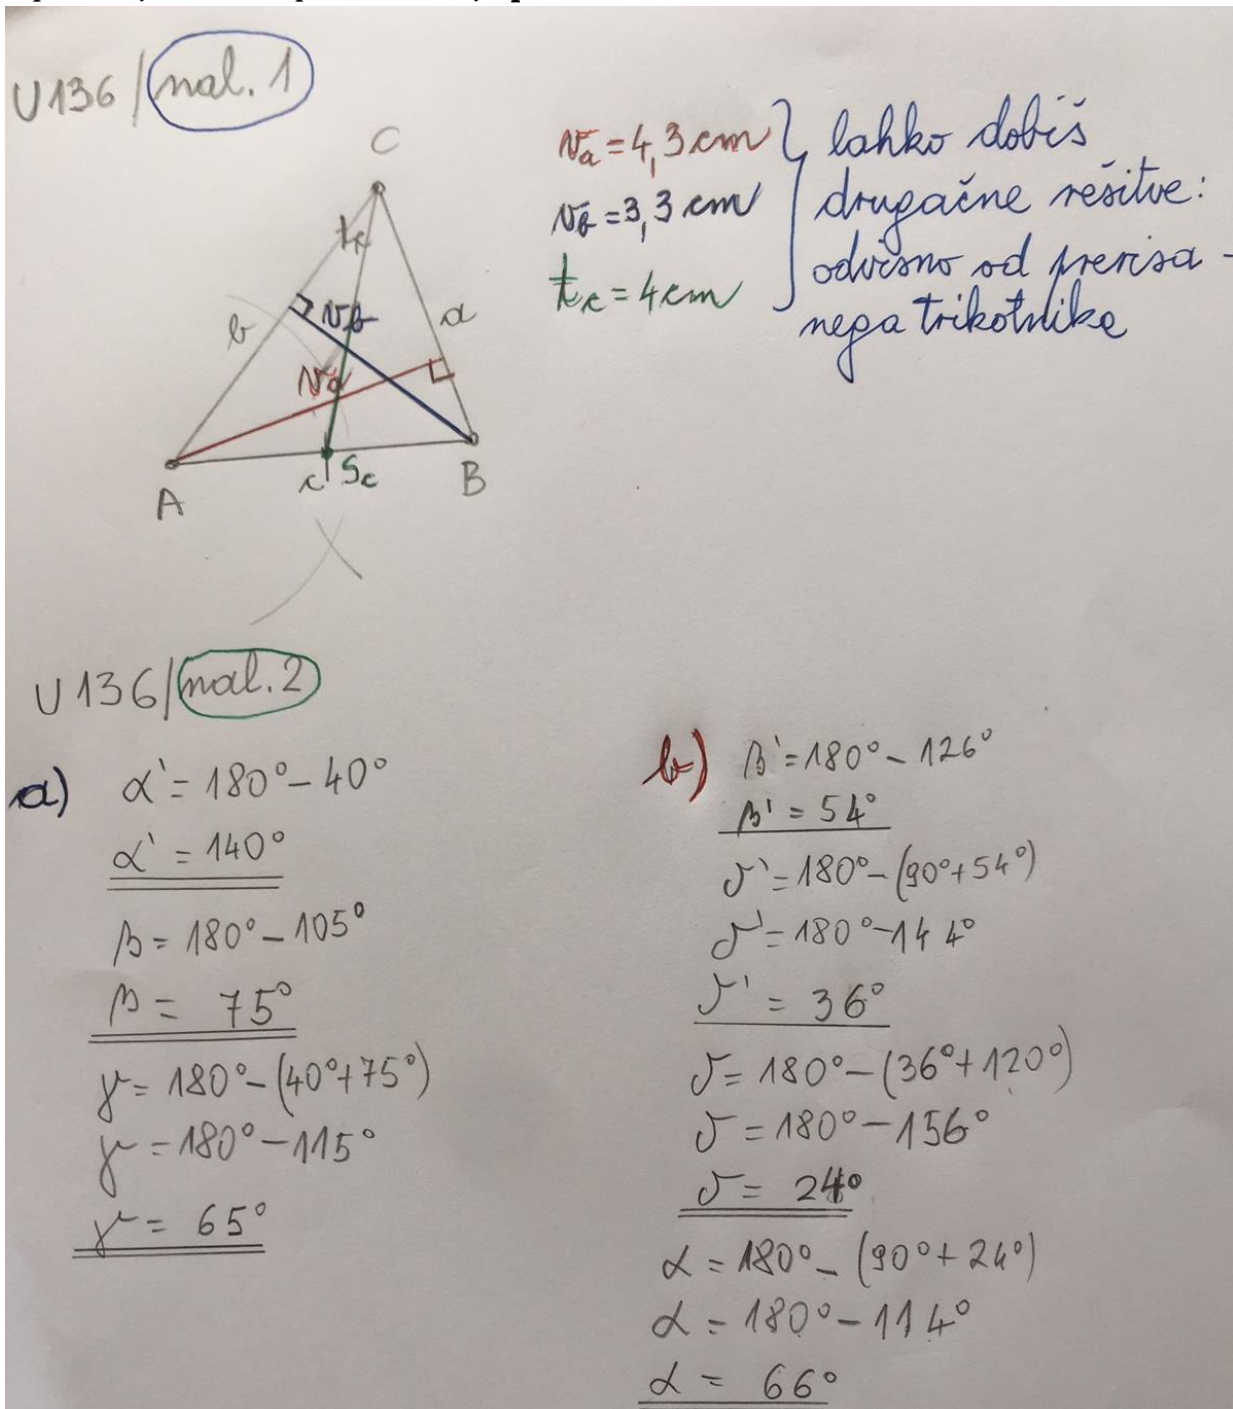 U136/nal. 1
C
v_a = 4,3 cm
v_b = 3,3 cm
t_c = 4 cm
lahko dobiš
drugačne rešitve:
odvisno od prerisa-
nega trikotnika
t_c
b
v_b
a
v_a
A
c
S_c
B
U136/nal. 2
a) α' = 180° - 40°
α' = 140°
β = 180° - 105°
β = 75°
γ = 180° - (40° + 75°)
γ = 180° - 115°
γ = 65°
b) β' = 180° - 126°
β' = 54°
δ' = 180° - (90° + 54°)
δ' = 180° - 144°
δ' = 36°
δ = 180° - (36° + 120°)
δ = 180° - 156°
δ = 24°
α = 180° - (90° + 24°)
α = 180° - 114°
α = 66°